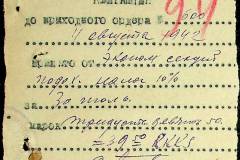 Квитанция
до приходного ордера № 600
11 августа 1942
принято от Эконом секция
подох. налог 10%
за За июль
марок Тридцать девять 50.
= 39 50 RKKS